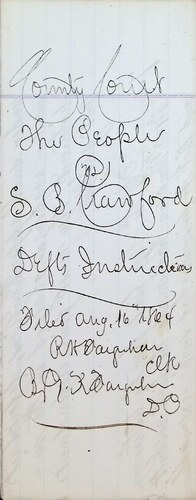 County Court
The People
vs
S. B. Crawford
Defts Instructions
Filed Aug. 16
R H Vaughan
Clk
D.C